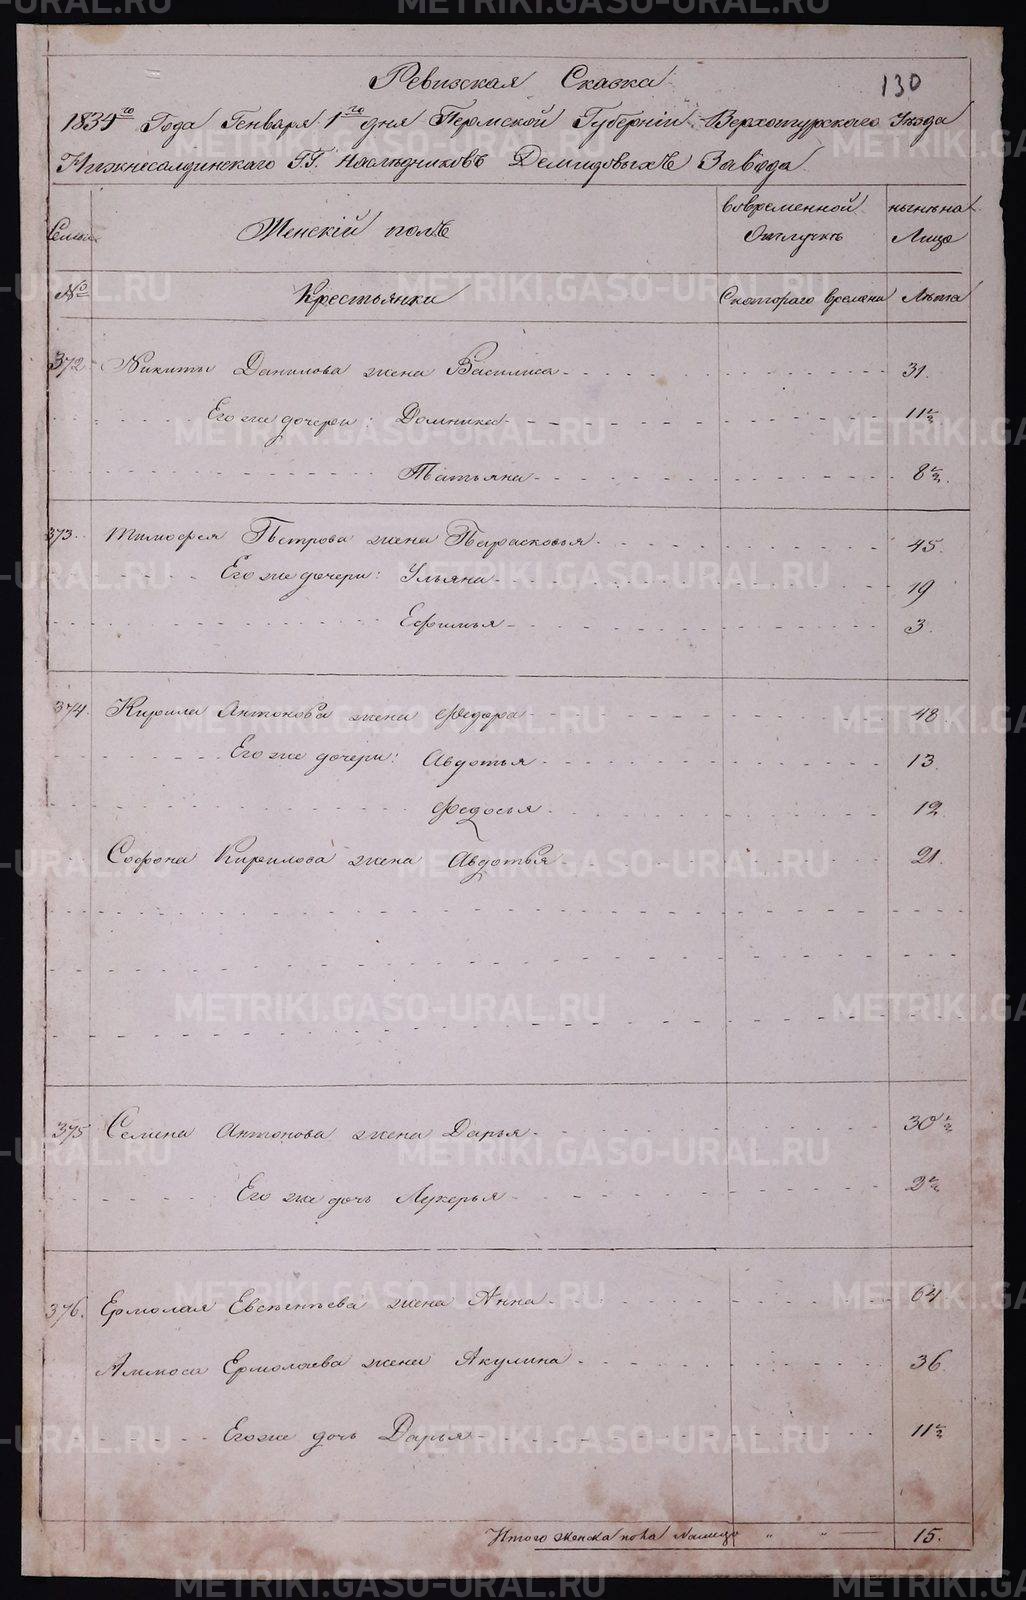 130
Ревизская Сказка
1834го Года Генваря 1го дня Пермской Губернiи Верхотурского Уезда
Нижнесалдинскаго Г.Г. Наследниковъ Демидовыхъ Завода
Семьи Женскiй полъ вовременной Отлучкѣ нынѣ на Лицо
№ Крестьянки Скотораго времяни Лѣта
372 Никиты Данилова жена Василиса 31.
Его же дочери: Домника 11½
Татьяна 8½.
373. Тимофея Петрова жена Парасковья 45.
Его же дочери: Ульяна 19
Ефимья 3.
374. Кирила Антонова жена Федора 48.
Его же дочери: Авдотья 13.
Федосья 12
Софона Кирилова жена Авдотья 21.
375 Семена Антонова жена Дарья 30½
Его же дочь Лукерья 2½
376. Ермолая Евсентьева жена Анна 64
Аммоса Ермолаева жена Акулина 36
Его же дочь Дарья 11½
Итого женска пола налицо " " 15.
METRIKI.GASO-URAL.RU